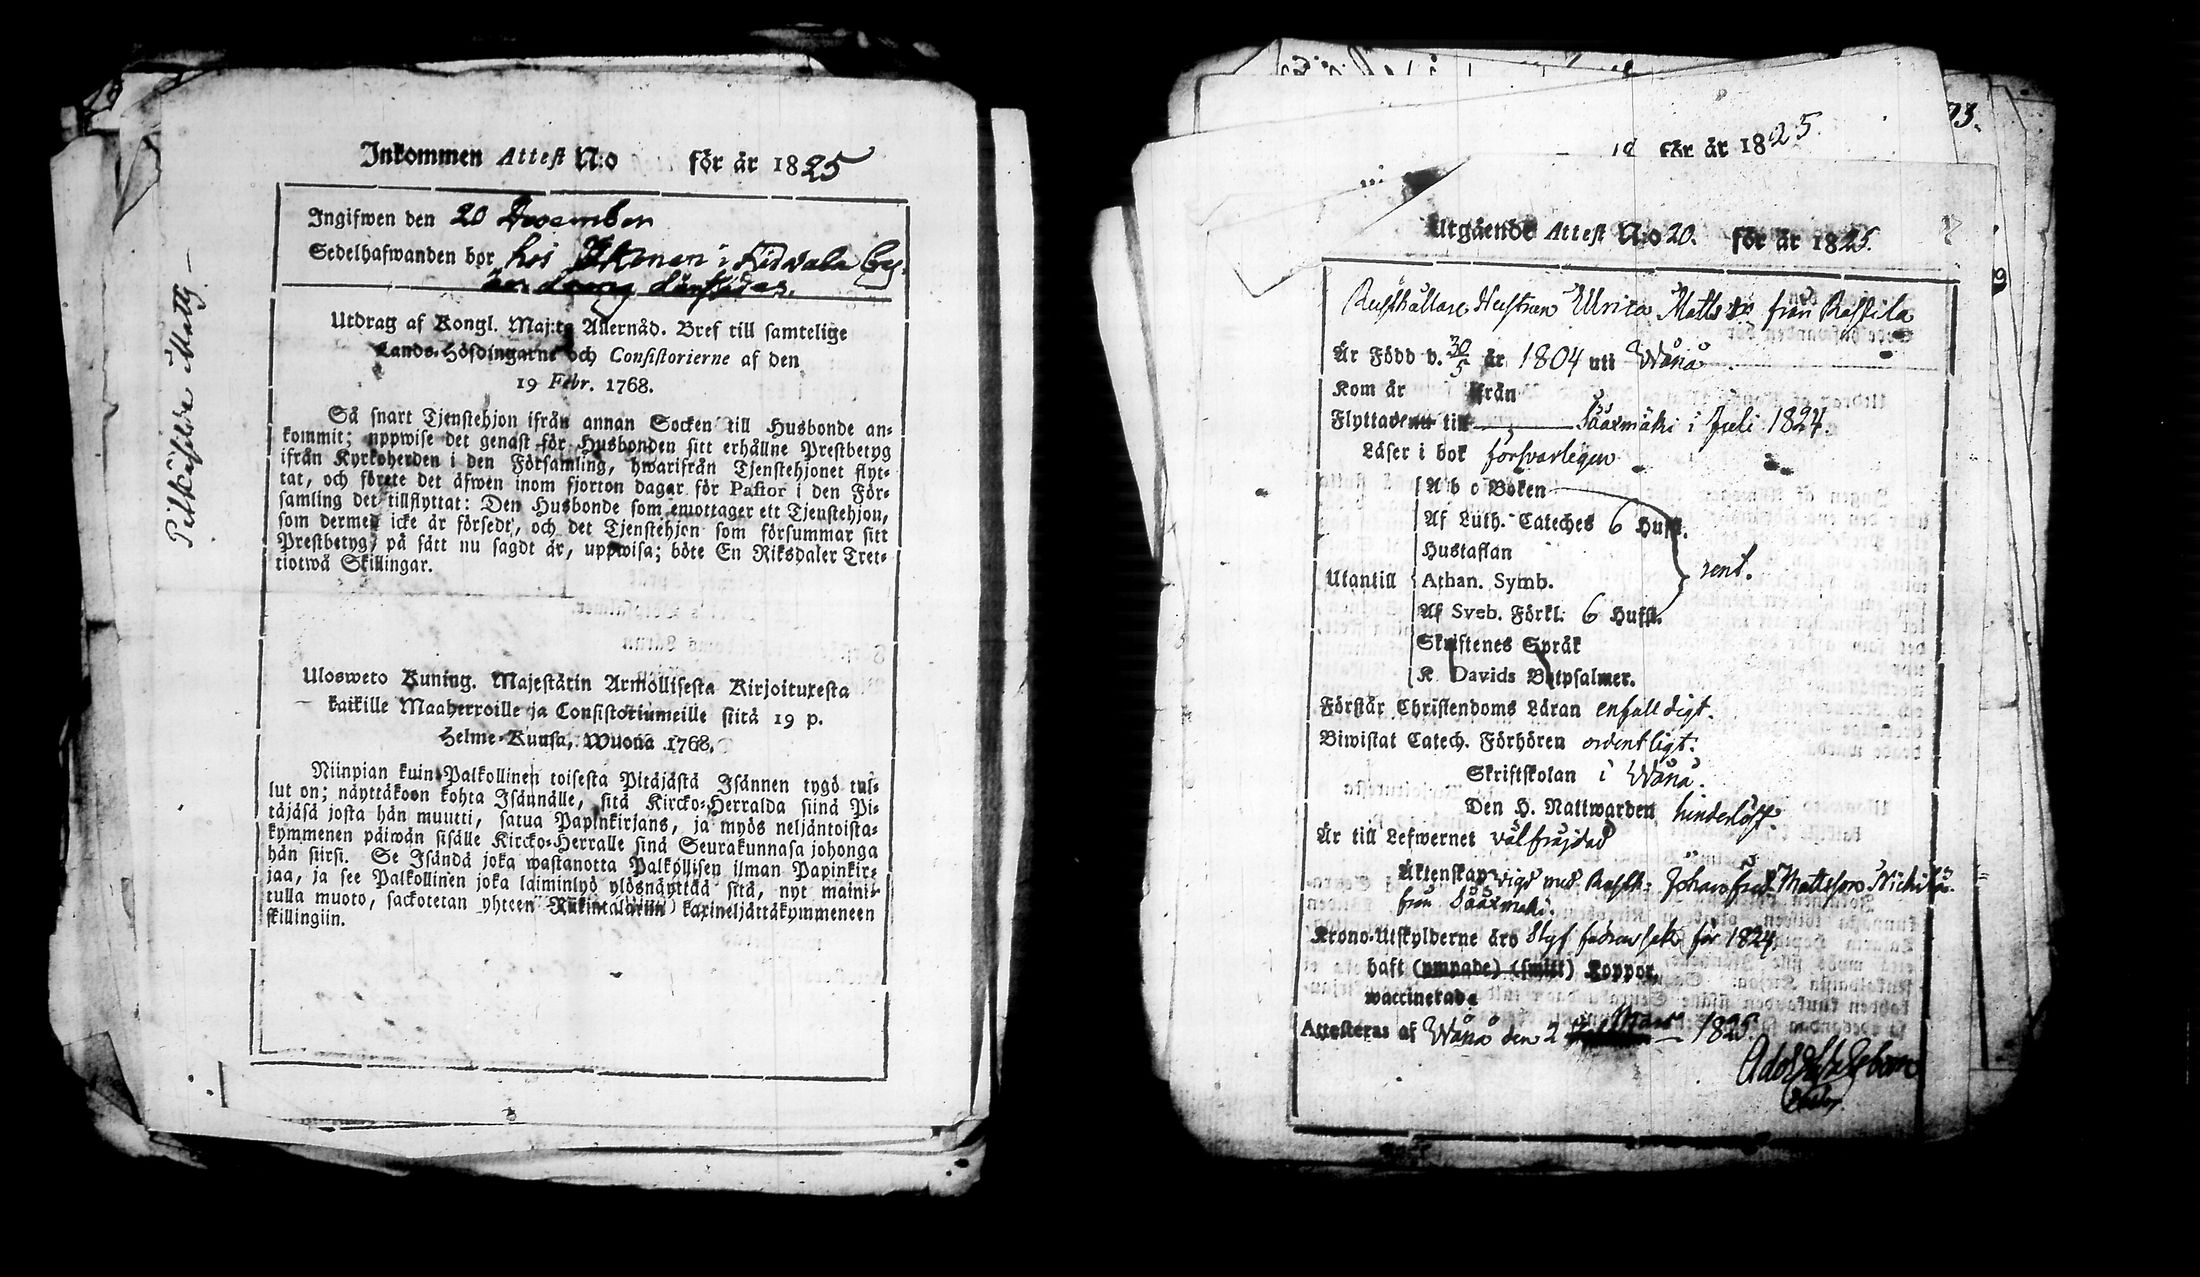 Pilkäisilda Matts
Inkommen Attest N:o för år 1825
Ingifwen den 20 December
Sedelhafwanden bor hos i by.
Utdrag af Kongl. Maj:ts Allernåd. Bref till samtelige
Lands-Höfdingarne och Consistorierne af den
19 Febr. 1768.
Så snart Tjenstehjon ifrån annan Socken till Husbonde an-
kommit; uppwise det genast för Husbonden sitt erhållne Prestbetyg
ifrån Kyrkoherden i den Församling, hwarifrån Tjenstehjonet flyt-
tat, och förete det äfwen inom fjorton dagar för Pastor i den För-
samling det tillflyttat: Den Husbonde som emottager ett Tjenstehjon,
som dermed icke är försedt, och det Tjenstehjon som försummar sitt
Prestbetyg, på sätt nu sagdt är, uppwisa; böte En Riksdaler Tret-
tiotwå Skillingar.
Ulosweto Kuning. Majestätin Armollisesta Kirjoituresta
kaikille Maaherroille ja Consistoriumeille siitä 19 p.
Helme-Kuusa, Wuona 1768.
Niinpian kuin Palkollinen toisesta Pitäjästä Isännen tygö tul-
lut on; näyttäkoon kohta Isännälle, sitä Kircko-Herralda siinä Pi-
täjäsä josta hän muutti, saatua Papinkirjans, ja myös neljäntoista-
kymmenen päiwän sisälle Kircko-Herralle siinä Seurakunnasa johonga
hän siirsi. Se Isändä joka wastanotta Palkollisen ilman Papinkir-
jaa, ja see Palkollinen joka laiminlyö ylösnäyttää sitä, nyt maini-
tulla muoto, sackotetan yhteen Riikintalariin kaxineljättäkymmeneen
skillingiin.
för år 1825
Utgående Attest N:o 20. för år 1825.
Rusthållare Hustrun Ulrica Matts dr från Raskila
Är Född d. 30/5 år 1804 uti Wånå
Kom år ifrån
Flyttade till Sääxmäki i Juli 1824.
Läser i bok försvarligen
A b c Boken
Af Luth. Cateches 6 Hufst.
Hustaflan
Utantill Athan. Symb. rent.
Af Sveb. Förkl. 6 Hufst.
Skriftenes Språk
K Davids Botpsalmer.
Förstår Christendoms Läran enfalldigt.
Biwistat Catech. Förhören ordentligt.
Skriftskolan i Wånå.
Den H. Nattwarden hinderlöst
Är till Lefwernet välfrejdad
Äktenskap vigd med Rusth. Johan Fred. Mattsson Nichilä
från Sääxmäki.
Krono-Utskylderne äro för 1824
haft (ympade) (smitt) Koppor.
waccinerade
Attesteras af Wånå den 2 Mars 1825.